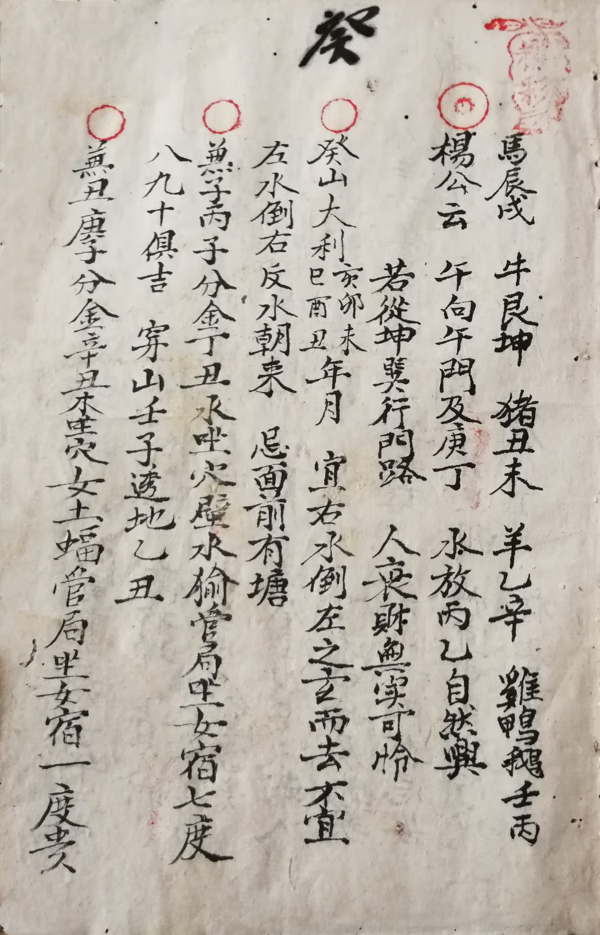 癸
馬辰戌 牛艮坤 猪丑未 羊乙辛 雞鴨鵝壬丙
楊公云 午向午門及庚丁 水放丙乙自然興
若從坤巽行門路 人衰財與实可怜
癸山大利亥卯未巳酉丑年月 宜右水倒左之玄而去不宜
左水倒右反水朝来 忌面前有塘
兼子丙子分金丁丑水坐穴壁水㺄管局坐女宿七度
八九十俱吉 穿山壬子透地乙丑
兼丑庚子分金辛丑木坐穴女土蝠管局坐女宿一度貴